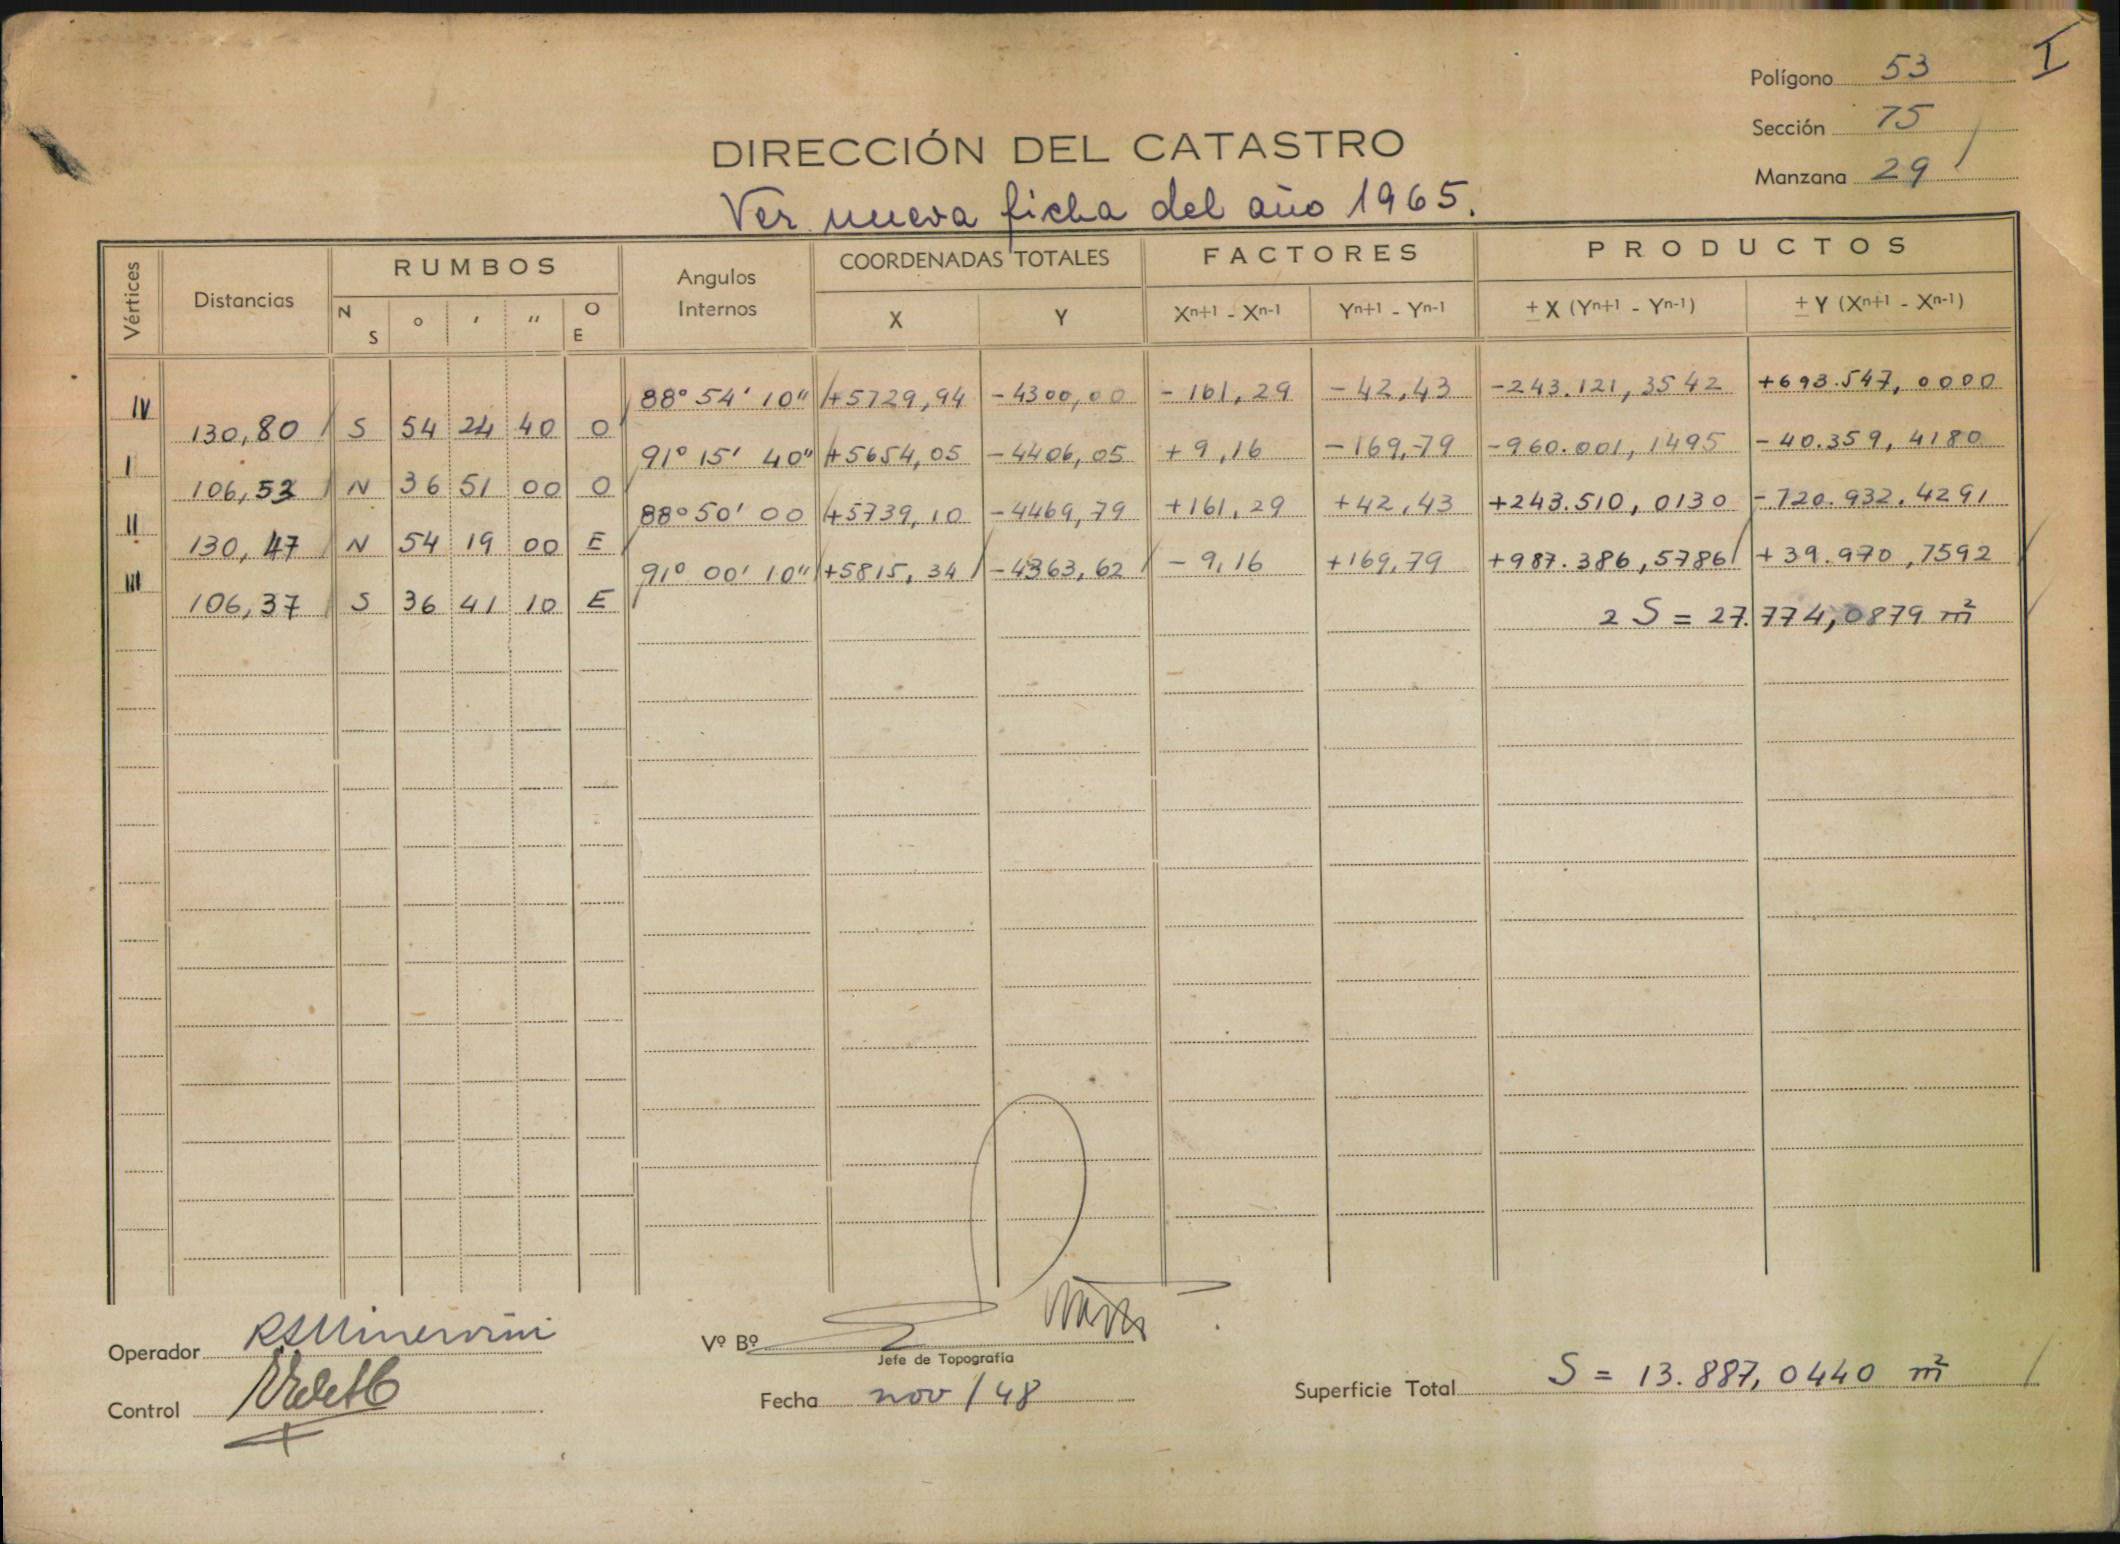 I
Polígono 53
Sección 75
Manzana 29
DIRECCIÓN DEL CATASTRO
Ver nueva ficha del año 1965.
Vértices Distancias RUMBOS Angulos Internos COORDENADAS TOTALES FACTORES PRODUCTOS
N S ° ' '' O E X Y Xn+1 - Xn-1 Yn+1 - Yn-1 ± X (Yn+1 - Yn-1) ± Y (Xn+1 - Xn-1)
IV 88° 54' 10" +5729,94 -4300,00 -161,29 -42,43 -243.121,3542 +693.547,0000
130,80 S 54 24 40 O
I 91° 15' 40" +5654,05 -4406,05 +9,16 -169,79 -960.001,1495 -40.359,4180
106,53 N 36 51 00 O
II 88° 50' 00 +5739,10 -4469,79 +161,29 +42,43 +243.510,0130 -720.932.4291
130,47 N 54 19 00 E
III 91° 00' 10" +5815,34 -4363,62 -9,16 +169,79 +987.386,5786 +39.970,7592
106,37 S 36 41 10 E
2 S = 27.774,0879 m²
Operador RSMinervini
Vº Bº
Jefe de Topografía
Control
Fecha nov/48
Superficie Total S = 13.887,0440 m²